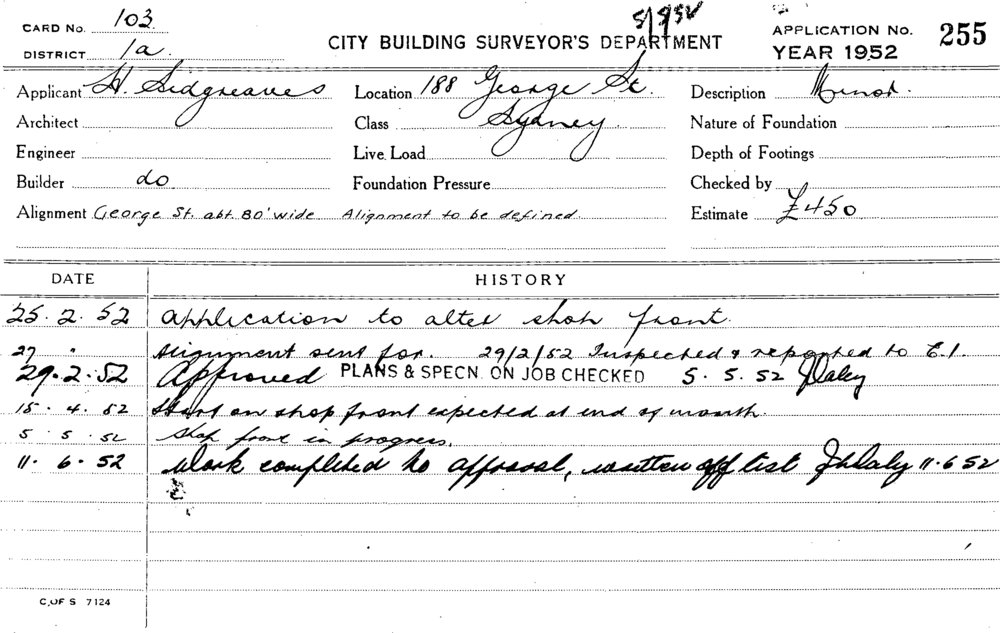 CARD No. 103
5/9/52
APPLICATION No. 255
DISTRICT 1a
CITY BUILDING SURVEYOR'S DEPARTMENT
YEAR 1952
Applicant H. Sidgreaves Location 188 George St. Description Minor.
Architect Class Sydney Nature of Foundation
Engineer Live Load Depth of Footings
Builder do Foundation Pressure Checked by
Alignment George St. abt 80' wide Alignment to be defined. Estimate £450
DATE HISTORY
25. 2. 52 Application to alter shop front.
27 " Alignment sent for. 29/2/52 Inspected & reported to C.I.
29. 2. 52 Approved PLANS & SPECN. ON JOB CHECKED 5. 5. 52 JDaley
15. 4. 52 Start on shop front expected at end of month.
5. 5. 52 Shop front in progress.
11. 6. 52 Work completed to approval, written off list JhDaley 11.6.52
C. OF S 7124